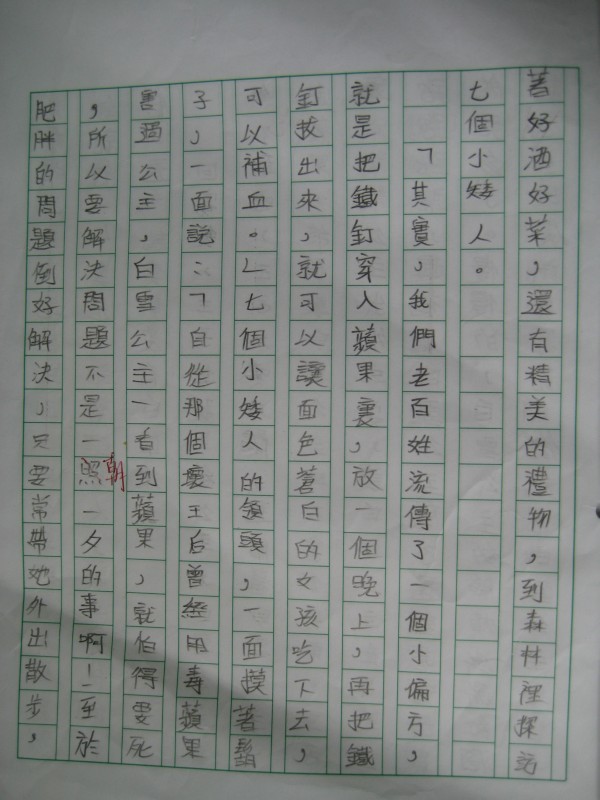 著好酒好菜，還有精美的禮物，到森林裡探訪
七個小矮人。
「其實，我們老百姓流傳了一個小偏方，
就是把鐵釘穿入蘋果裏，放一個晚上，再把鐵
釘拔出來，就可以讓面色蒼白的女孩吃下去，
可以補血。」七個小矮人的領頭，一面摸著鬍
子，一面說：「自從那個壞王后曾經用毒蘋果
害過公主，白雪公主一看到蘋果，就怕得要死
，所以要解決問題不是一照朝一夕的事啊！至於
肥胖的問題倒好解決，只要常帶她外出散步，